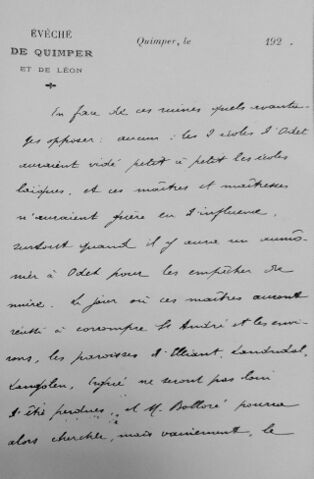 ÉVÊCHÉ
DE QUIMPER
ET DE LÉON
Quimper, le 192 .
En face de ces ruines quels avanta-
ges opposer : aucun : les 2 écoles d'Odet
auraient vidé petit à petit les écoles
laïques, et ces maîtres et maîtresses
n'auraient guère eu d'influence,
surtout quand il y aura un aumô-
nier à Odet pour les empêcher de
nuire. Le jour où ces maîtres auront
réussi à corrompre St André et les envi-
rons, les paroisses d'Elliant, Landudal,
Langolen, Briec ne seront pas loin
d'être perdues, et M. Bolloré pourra
alors chercher, mais vainement, le